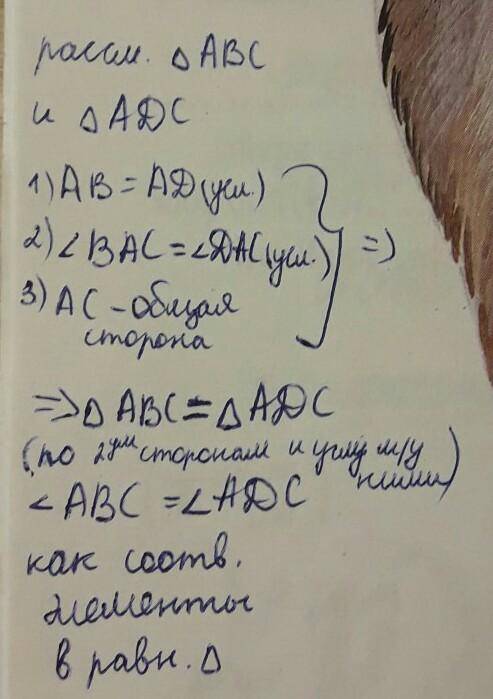 рассм. △ ABC
и △ ADC
1) AB = AD (усл.)
2) ∠BAC = ∠DAC (усл.) } =>
3) AC - общая
сторона
=> △ ABC = △ ADC
(по 2ум сторонам и углу м/у
ними)
∠ABC = ∠ADC
как соотв.
элементы
в равн. △